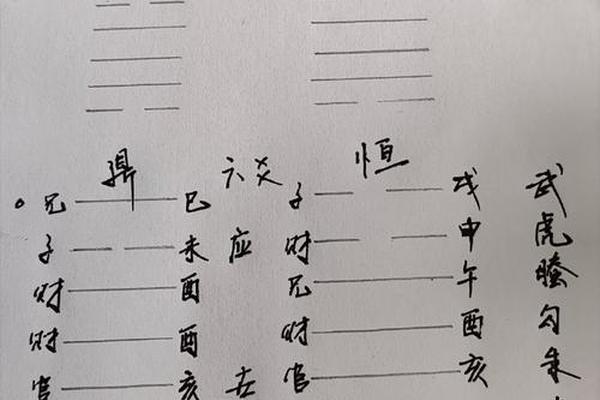 鼎 六爻 恒
兄 巳 子 戌 武
子 未 应 财 申 虎
财 酉 兄 午 螣
财 酉 财 酉 勾
官 亥 世 官 亥 朱